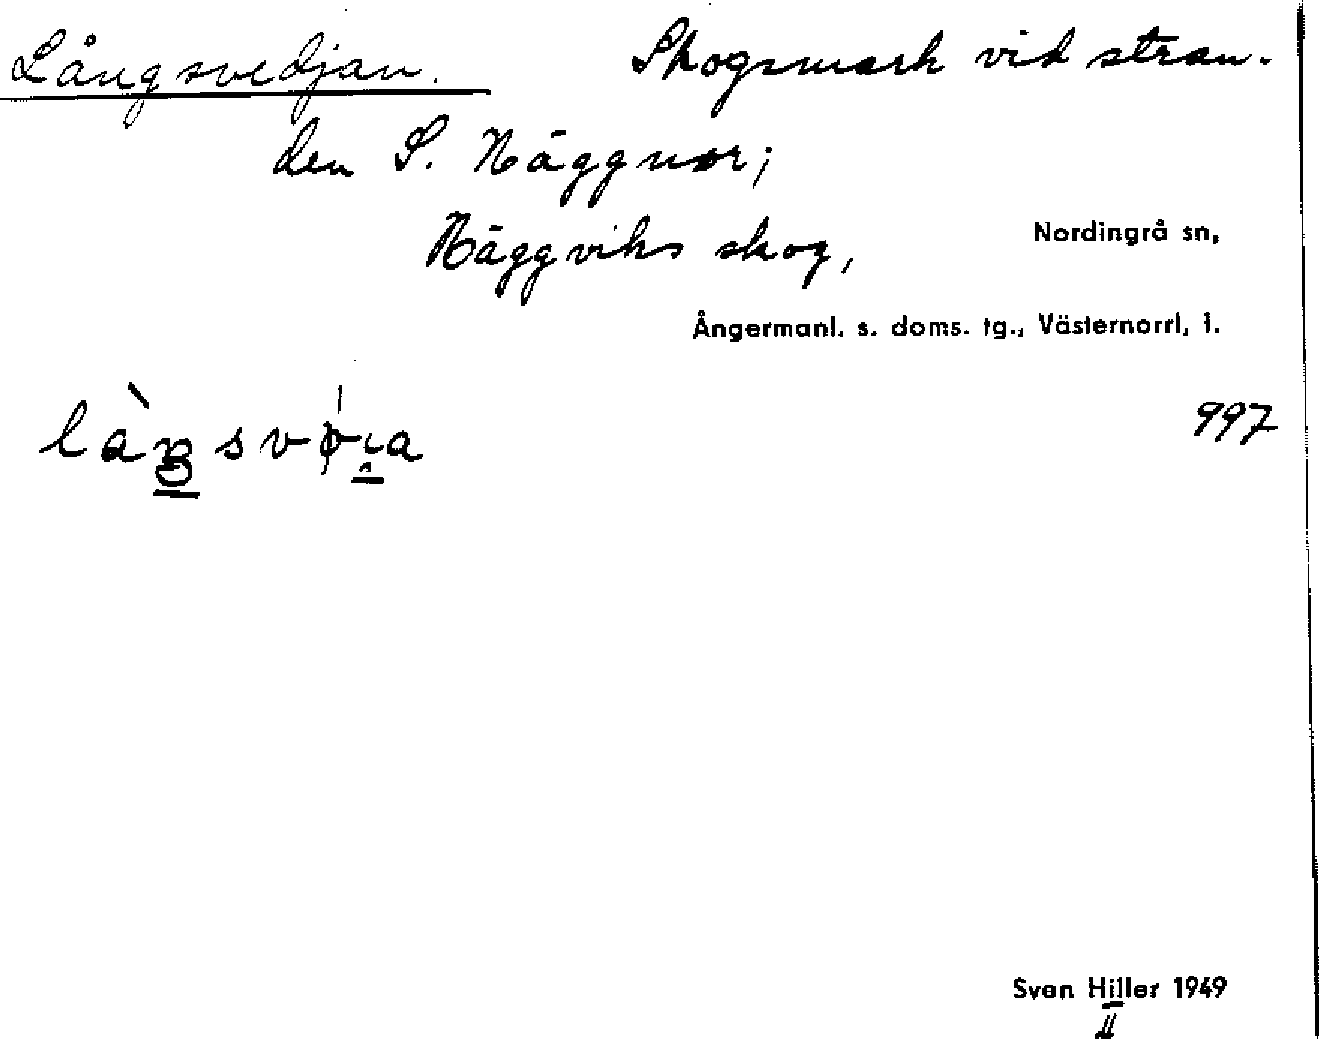 Långsvedjan. Skogsmark vid stran-
den S. Näggnor;
Näggviks skog,
Nordingrå sn,
Ångermanl. s. doms. tg., Västernorrl, l.
997
Sven Hiller 1949
II